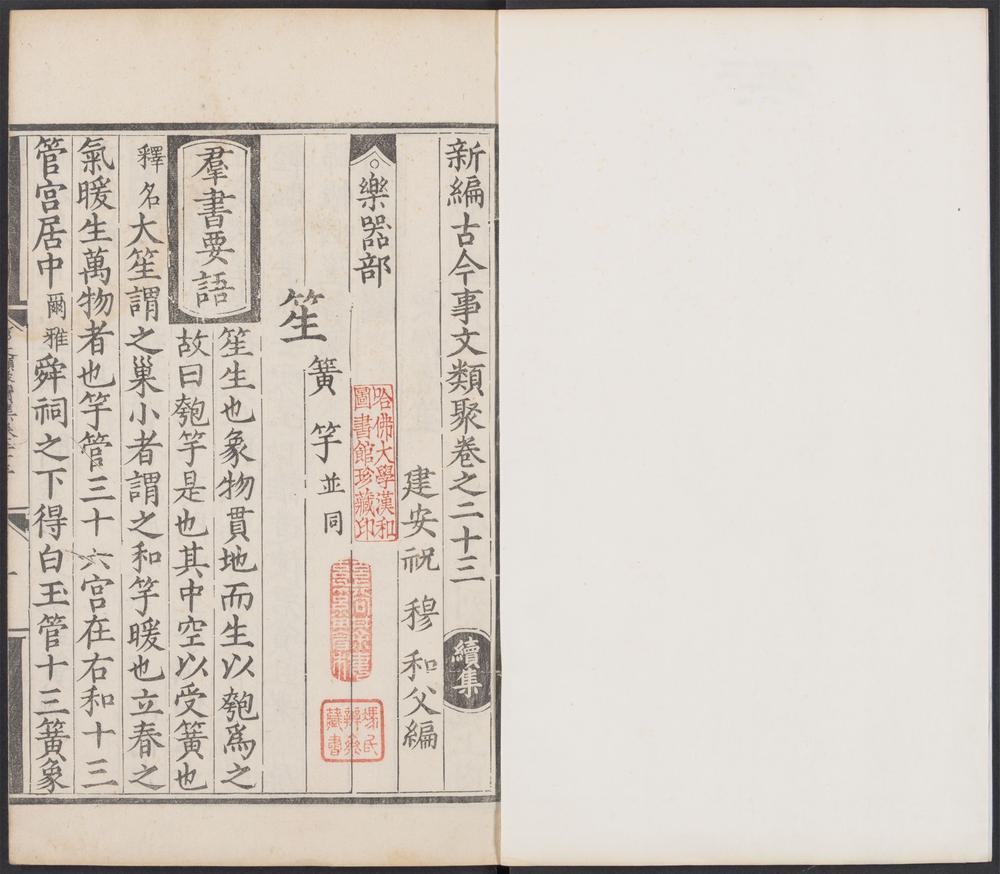 新編古今事文類聚卷之二十三 續集
建安祝 穆 和父編
樂器部
哈佛大學漢和
圖書館珍藏印
笙 簧 竽 並同
羣書要語
笙生也象物貫地而生以匏爲之
故曰匏竽是也其中空以受簧也
釋名大笙謂之巢小者謂之和竽暖也立春之
氣暖生萬物者也竽管三十六宮在右和十三
管宮居中爾雅舜祠之下得白玉管十三簧象